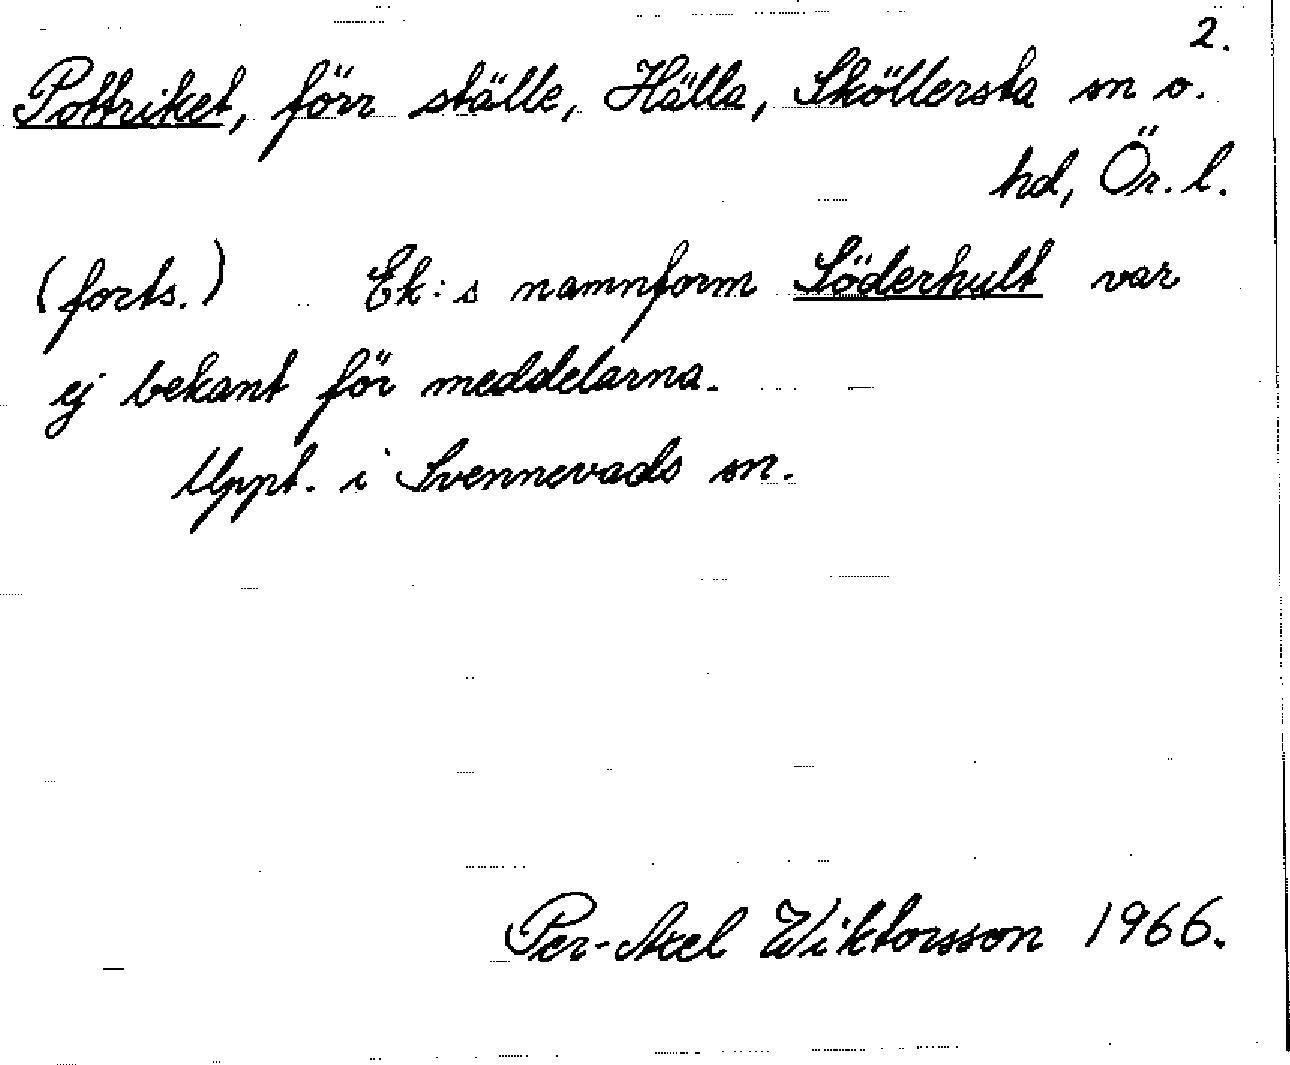 2.
Pottriket, förr ställe, Hälla, Sköllersta sn o.
hd, Ör. l.
(forts.) Ek:s namnform Söderhult var
ej bekant för meddelarna.
Uppt. i Svennevads sn.
Per-Axel Wiktorsson 1966.